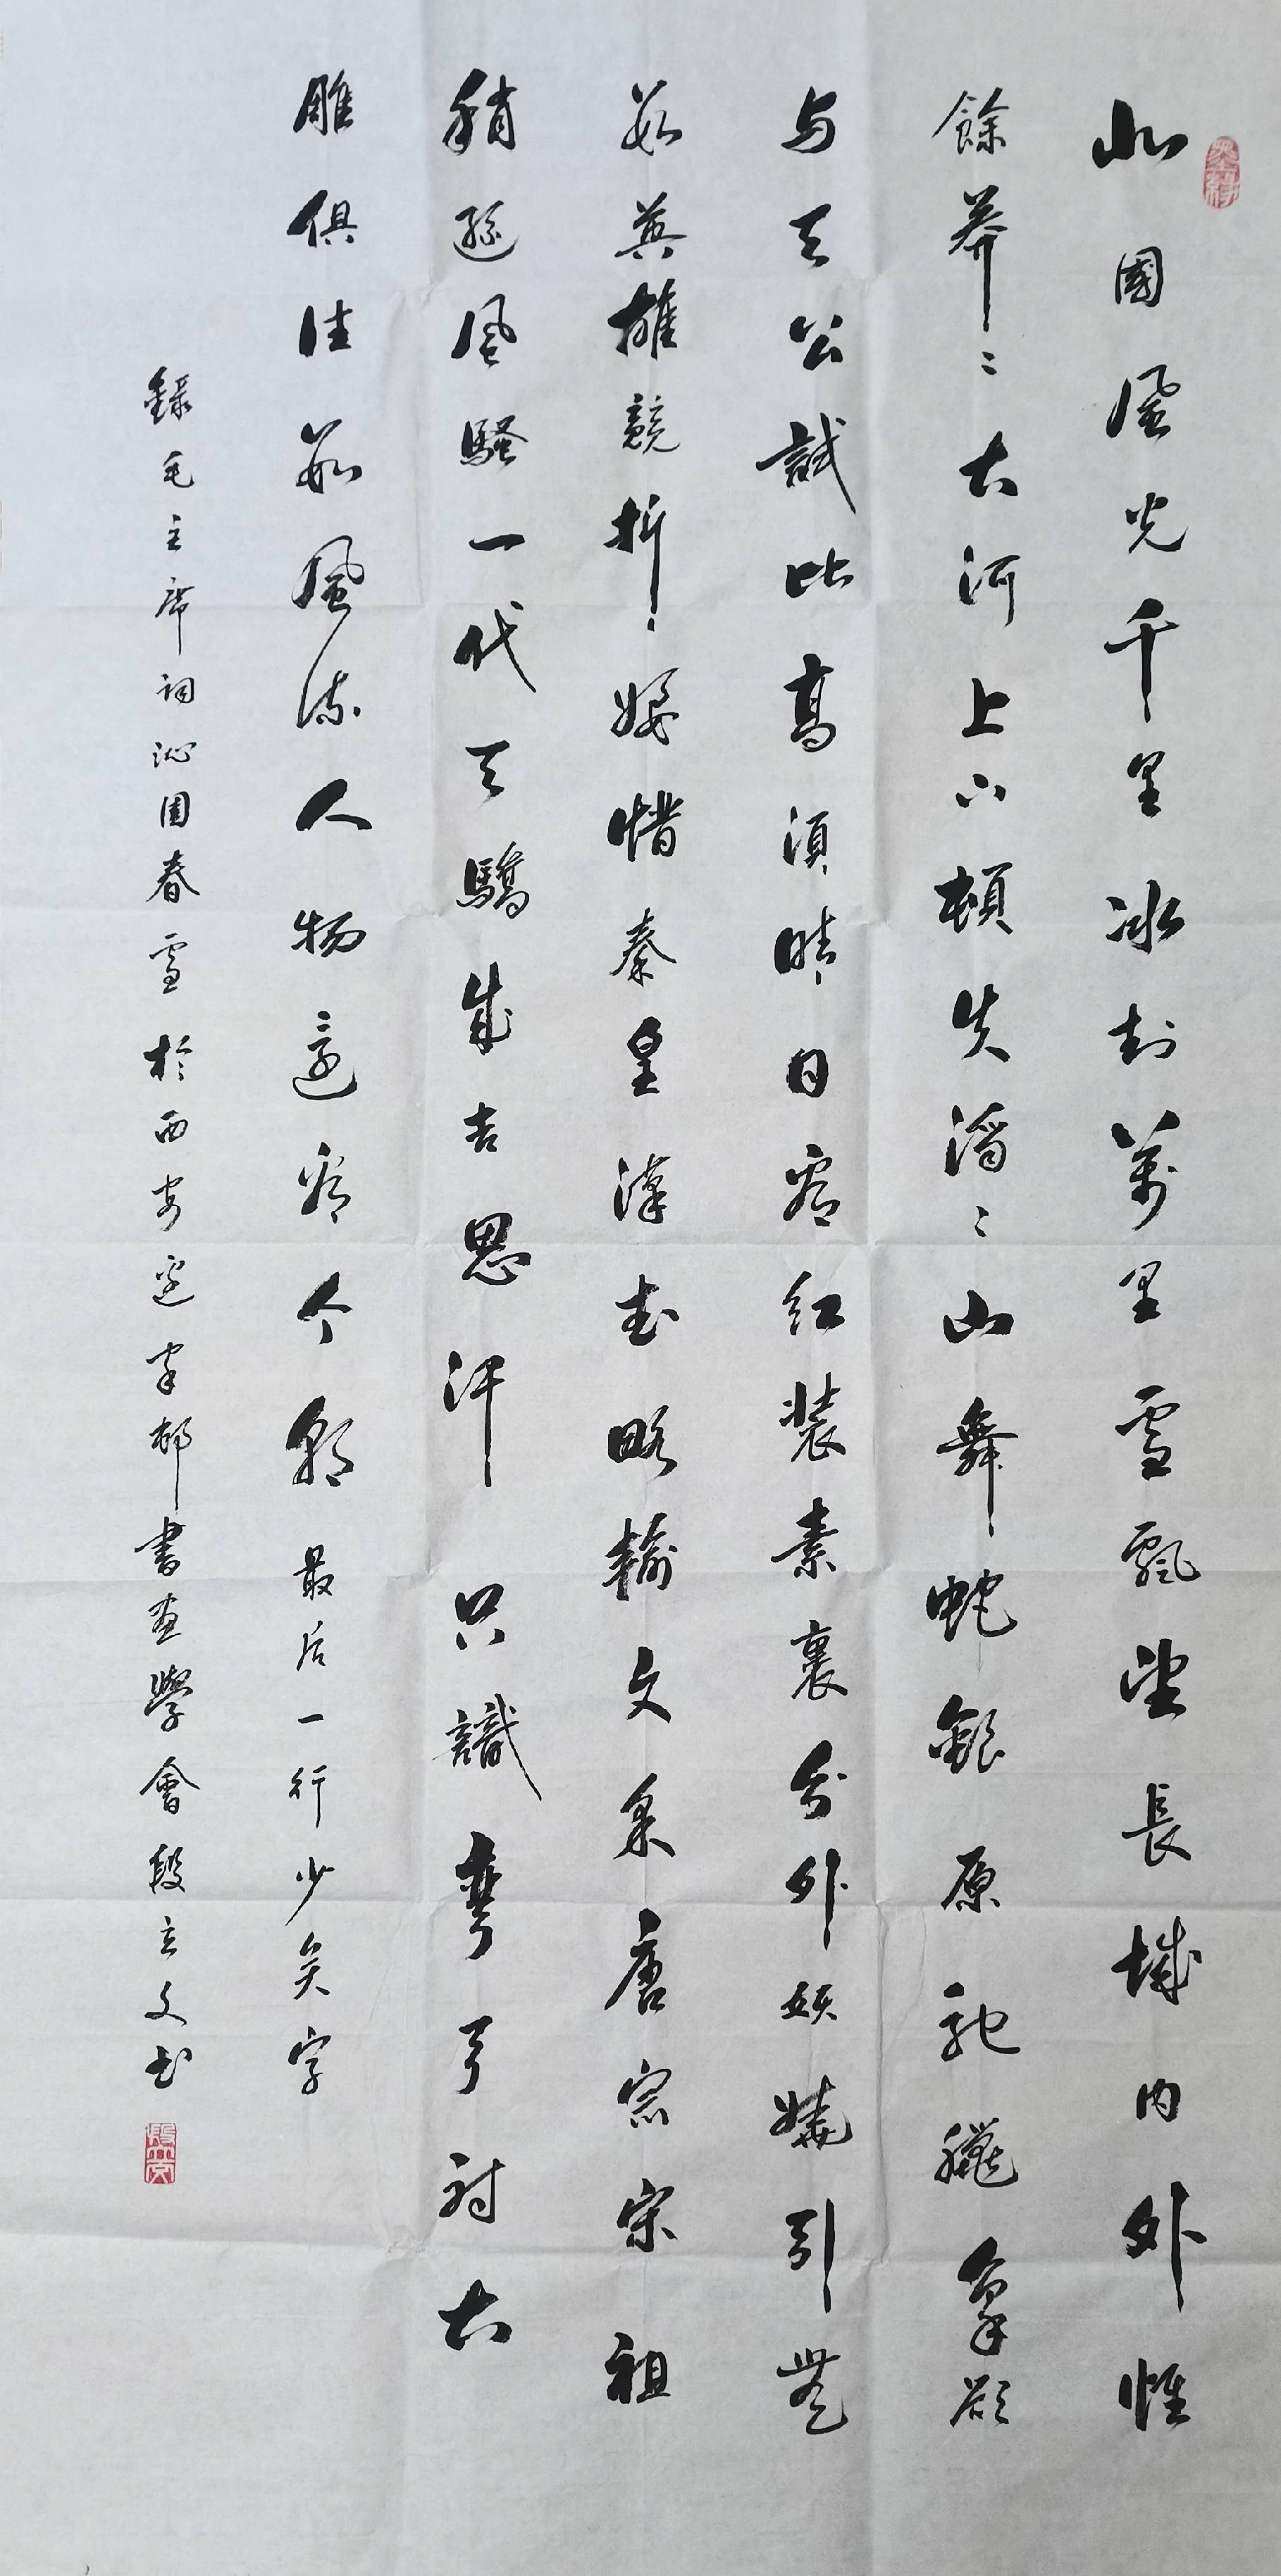 墨缘
北國風光千里冰封萬里雪飄望長城内外惟
餘莽〻大河上下頓失滔〻山舞蛇銀原馳臘象欲
与天公試比高須晴日看红装素裹分外妖嬈引無
数英雄競折腰惜秦皇漢武略輸文采唐宗宋祖
稍遜風騷一代天驕成吉思汗只識彎弓射大
雕俱往数風流人物還看今朝 最后一行少矣字
錄毛主席詞沁園春雪於西安边家邨書画學會段立文书